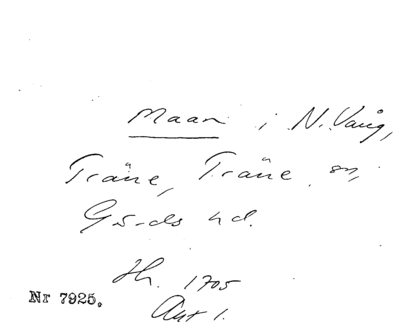 Maan i N. Vång,
Träne, Träne sn,
Gärds hd.
Hr. 1705
Akt 1.
Nr 7925.